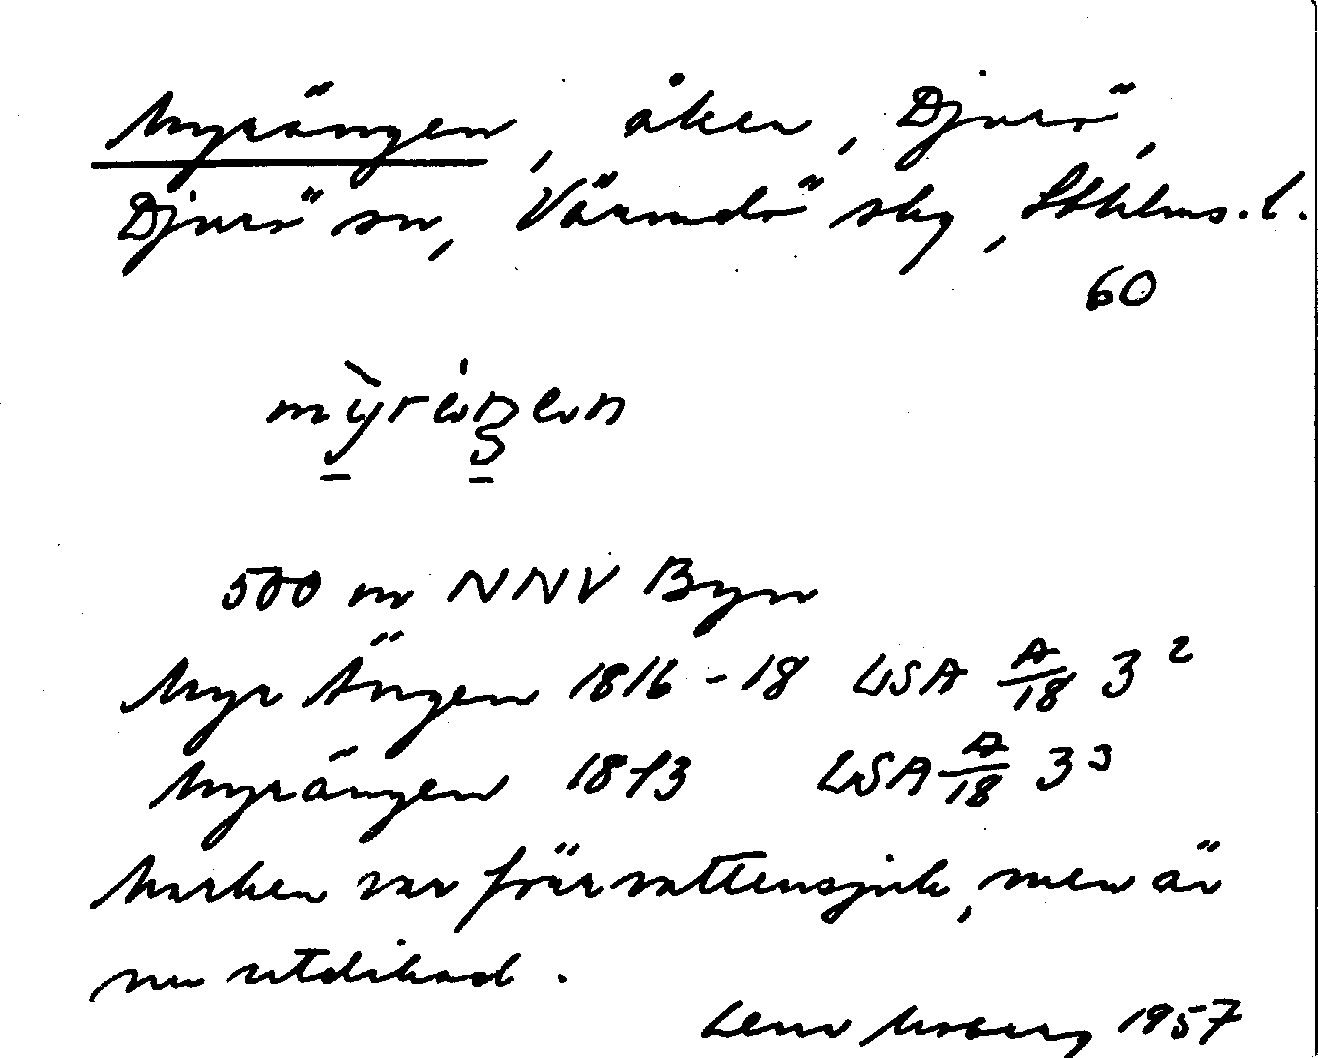 Myrängen, åker, Djurö,
Djurö sn, Värmdö skg, Sthlms. l.
60
500 m NNV Byn
Myr Ängen 1816-18 LSA A/18 3²
Myrängen 1873 LSA A/18 3³
Marken var förr vattensjuk, men är
nu utdikad.
Lena Moberg 1957